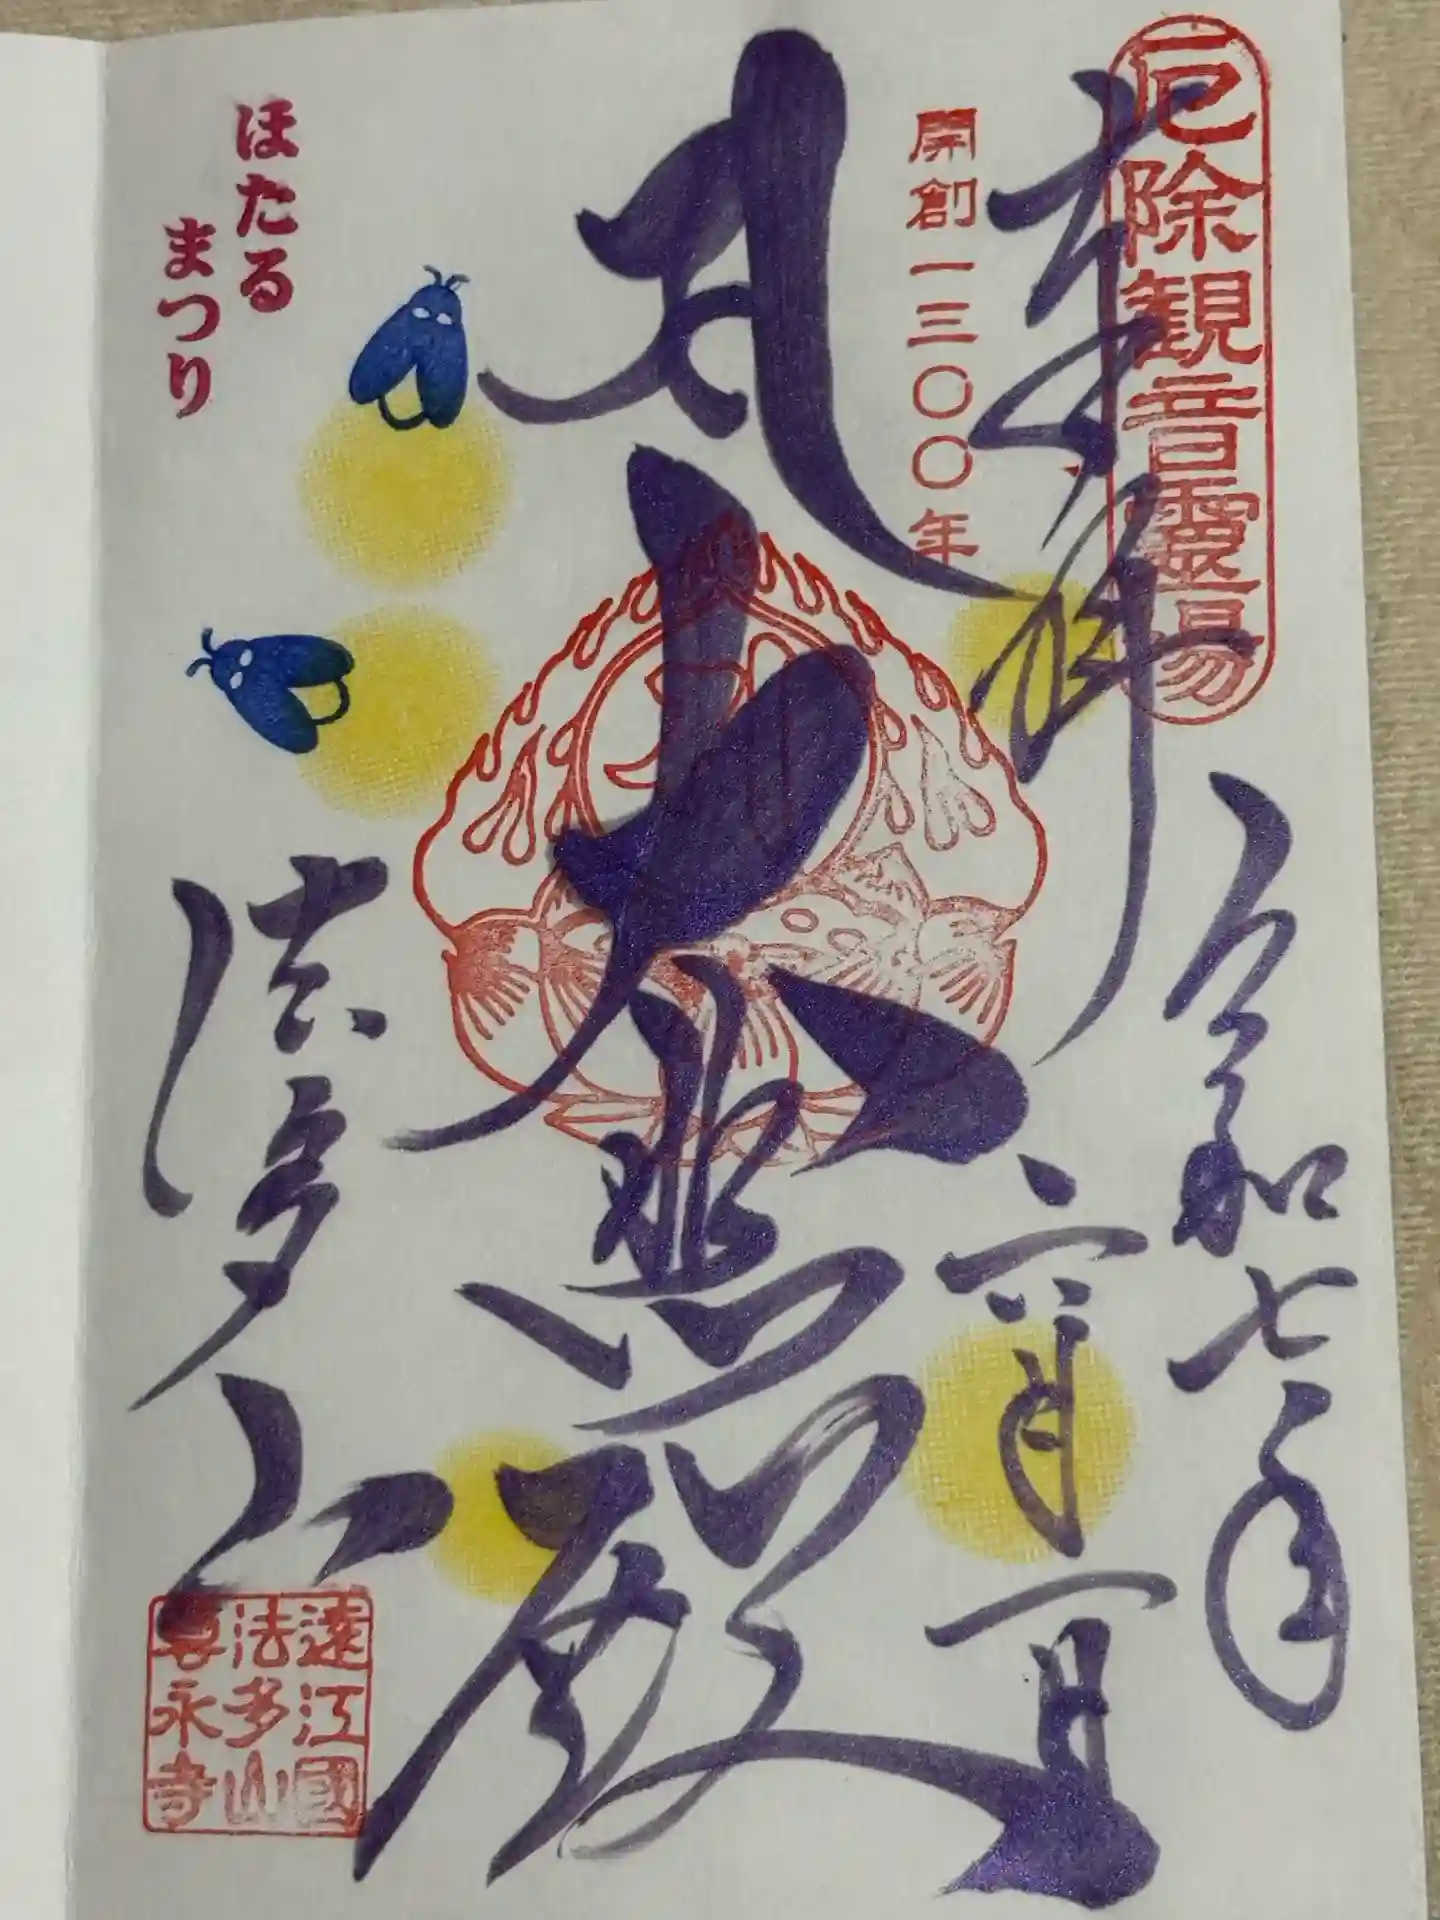 厄除観音霊場
奉拝
令和七年
六月一日
開創一三〇〇年
大悲殿
ほたる
まつり
法多山
遠江國
法多山
尊永寺